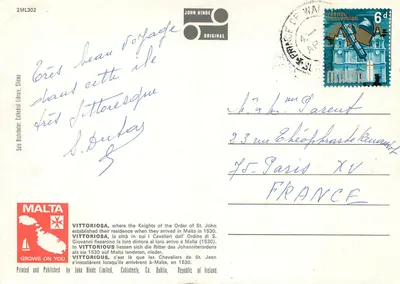 2ML302
JOHN HINDE
ORIGINAL
PRINCE OF WA
6d
Très beau voyage
dans cette île
très pittoresque
S. Dutar
M. & Mme Parent
23 rue Théophraste Renaudot
75-Paris XV
FRANCE
MALTA
GROWS ON YOU
VITTORIOSA, where the Knights of the Order of St. John
established their residence when they arrived in Malta in 1530.
VITTORIOSA, la città in cui i Cavalieri dell' Ordine di S.
Giovanni fissarono la loro dimora al loro arrivo a Malta (1530).
In VITTORIOUS liessen sich die Ritter des Johanniterordens
als sie 1530 auf Malta landeten, nieder.
VITTORIOUS, c'est là que les Chevaliers de St. Jean
s'installèrent lorsqu'ils arrivèrent à Malte, en 1530.
Printed and Published by John Hinde Limited, Cabinteely, Co. Dublin, Republic of Ireland.